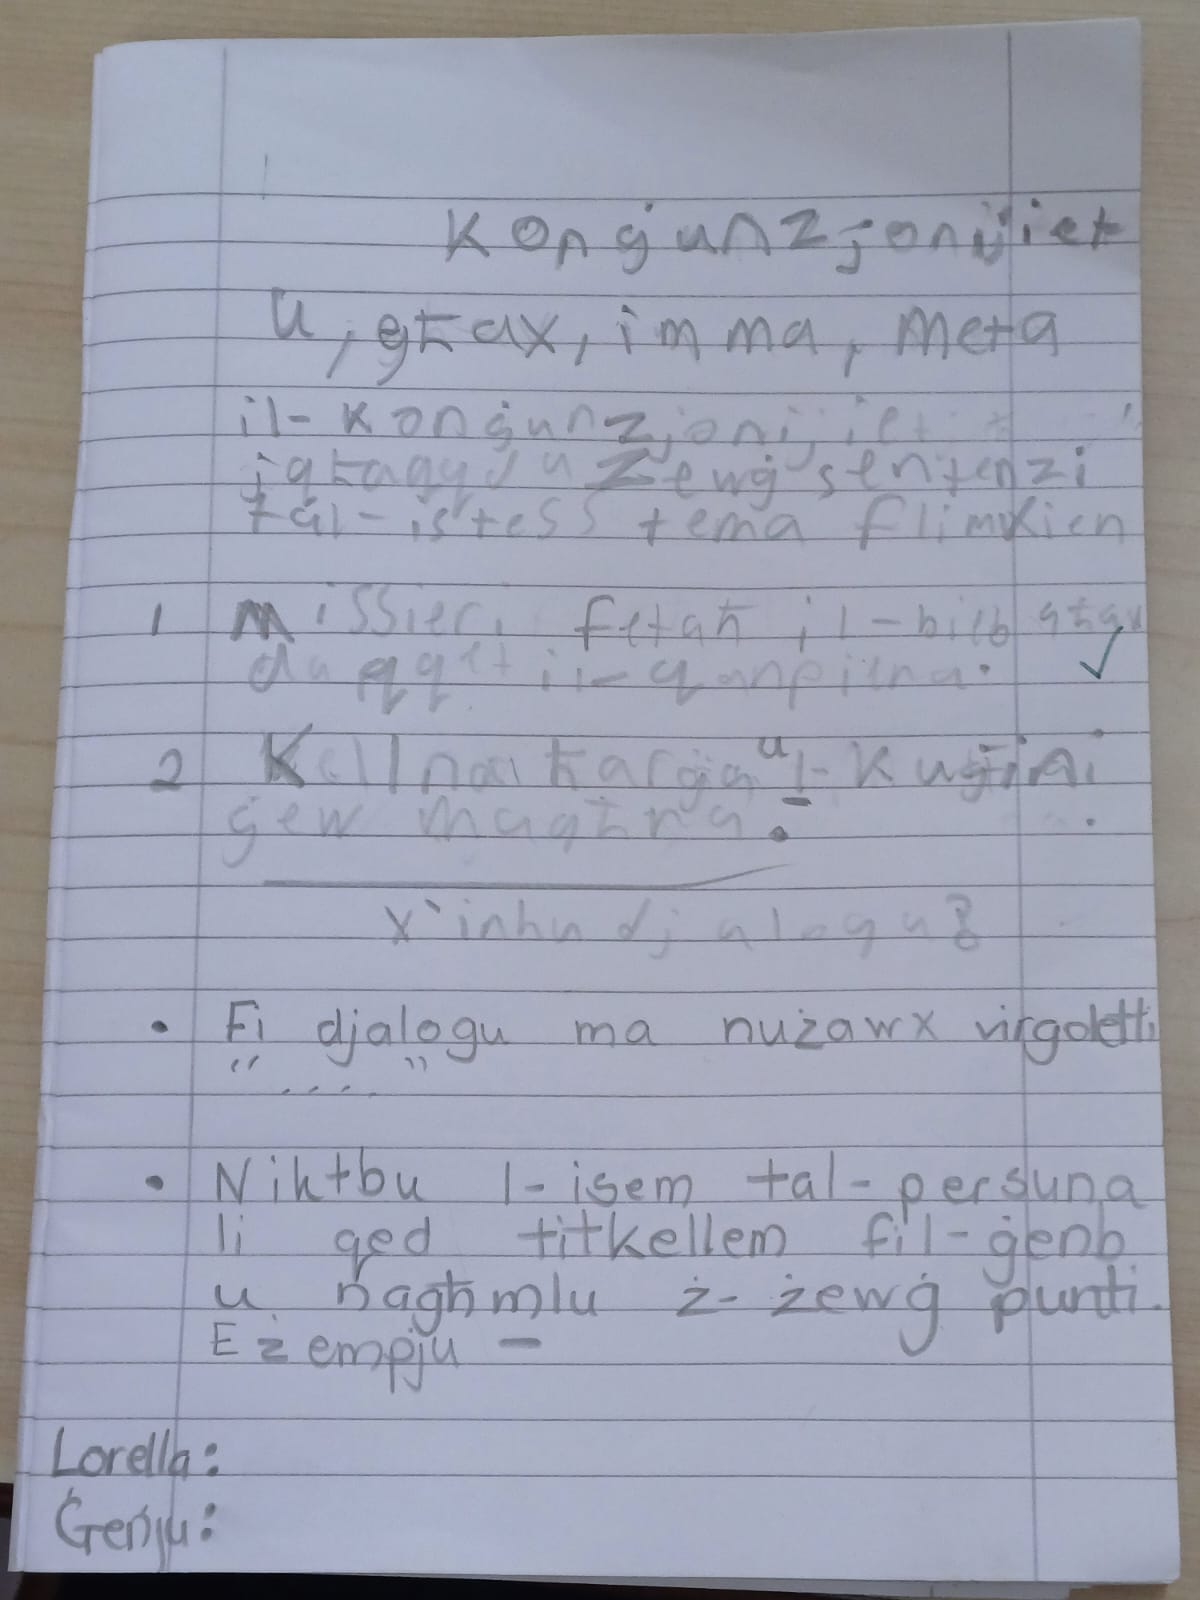 Konġunzjonijiet
u, għax, imma, meta
il-Konġunzjonijiet
jgħaqqdu żewġ sentenzi
tal-istess tema flimkien
1 Missieri fetaħ il-bieb għax
daqqet il-qanpiena.
2 Kellna ħarġa u l-Kuġini
ġew magħna.
x'inhu djalogu?
• Fi djalogu ma nużawx virgoletti
" .... "
• Niktbu l-isem tal-persuna
li qed titkellem fil-ġenb
u nagħmlu ż-żewġ punti.
Eżempju -
Lorella:
Ġenju: